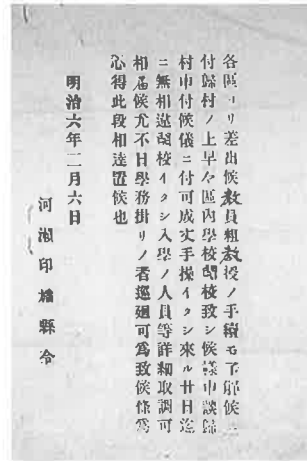 各區ヨリ差出候敎員粗敎授ノ手續モ了解候ニ
付歸村ノ上早々區內學校開校致シ候樣申談歸
村申付候儀ニ付可成丈手操イタシ來ル廿日迄
ニ無相違開校イタシ入學ノ人員等詳細取調可
相屆候尤不日學務掛リノ者巡廻可爲致候條爲
心得此段相達置候也
明治六年二月六日
河瀨印旛縣令